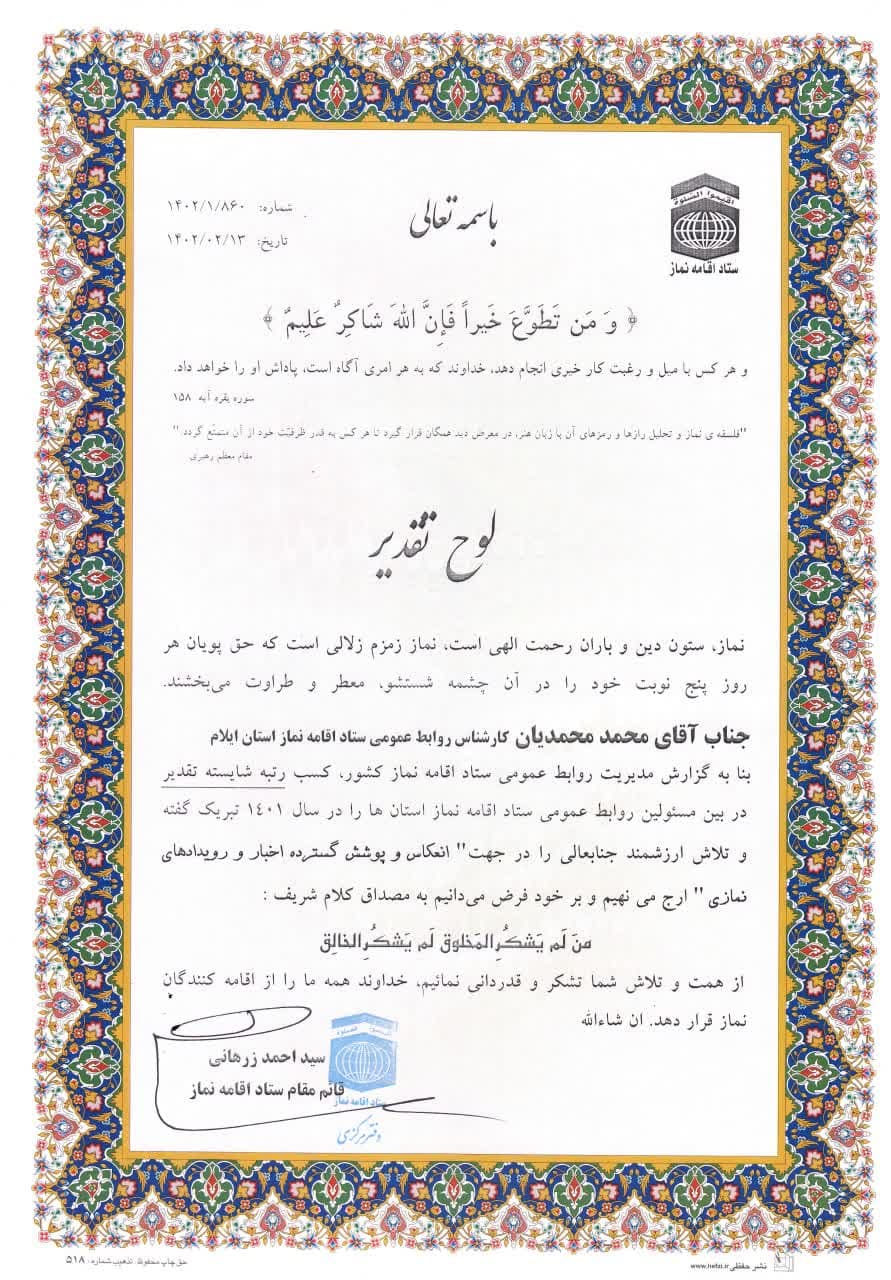 اقیموا الصلوة
ستاد اقامه نماز
باسمه تعالی
شماره: ۱۴۰۲/۱/۸۶۰
تاریخ: ۱۴۰۲/۰۲/۱۳
﴿ وَ مَن تَطَوَّعَ خَیراً فَإِنَّ اللهَ شَاکِرٌ عَلِیمٌ ﴾
و هر کس با میل و رغبت کار خیری انجام دهد، خداوند که به هر امری آگاه است، پاداش او را خواهد داد.
سوره بقره آیه ۱۵۸
"فلسفه ی نماز و تحلیل رازها و رمزهای آن با زبان هنر، در معرض دید همگان قرار گیرد تا هر کس به قدر ظرفیّت خود از آن متمتّع گردد "
مقام معظم رهبری
لوح تقدیر
نماز، ستون دین و باران رحمت الهی است، نماز زمزم زلالی است که حق پویان هر
روز پنج نوبت خود را در آن چشمه شستشو، معطر و طراوت می‌بخشند.
جناب آقای محمد محمدیان کارشناس روابط عمومی ستاد اقامه نماز استان ایلام
بنا به گزارش مدیریت روابط عمومی ستاد اقامه نماز کشور، کسب رتبه شایسته تقدیر
در بین مسئولین روابط عمومی ستاد اقامه نماز استان ها را در سال ۱۴۰۱ تبریک گفته
و تلاش ارزشمند جنابعالی را در جهت" انعکاس و پوشش گسترده اخبار و رویدادهای
نمازی " ارج می نهیم و بر خود فرض می‌دانیم به مصداق کلام شریف :
مَن لَم یَشکُرِ المَخلوق لَم یَشکُرِ الخالِق
از همت و تلاش شما تشکر و قدردانی نمائیم، خداوند همه ما را از اقامه کنندگان
نماز قرار دهد. ان شاءالله
سید احمد زرهانی
قائم مقام ستاد اقامه نماز
ستاد اقامه نماز
دفتر مرکزی
نشر حفظی www.hefzi.ir
حق چاپ محفوظ. تذهیب شماره: ۵۱۸